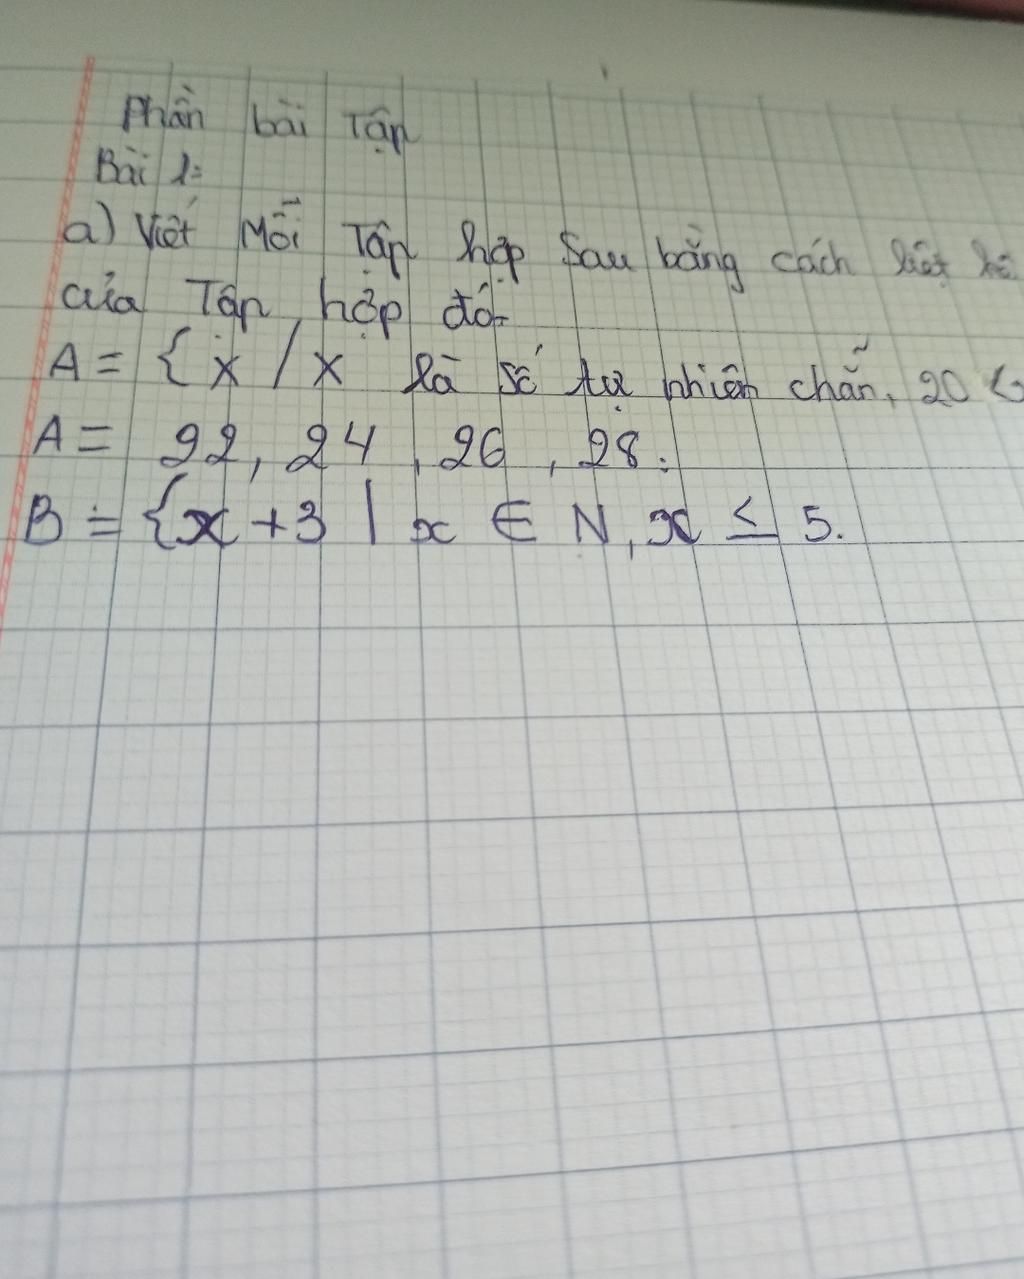 Phần bài Tập
Bài 1:
a) Viết Mỗi Tập hợp Sau bằng cách liệt kê
của Tập hợp đó.
A = { x / x là số tự nhiên chẵn, 20 <
A = 22, 24, 26, 28.
B = {x + 3 | x ∈ N, x ≤ 5.